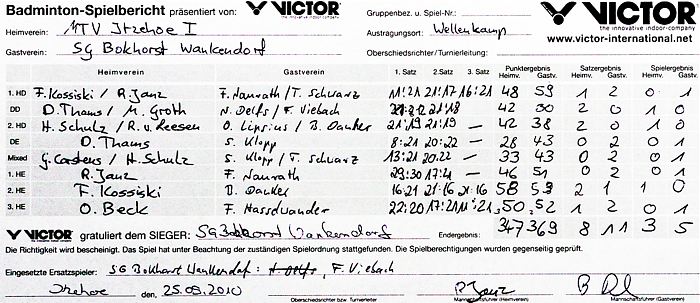 Badminton-Spielbericht präsentiert von: VICTOR the innovative indoor-company Gruppenbez. u. Spiel-Nr.: VICTOR the innovative indoor-company
Heimverein: MTV Itzehoe I Austragungsort: Wellenkamp www.victor-international.net
Gastverein: SG Bokhorst Wankendorf Oberschiedsrichter/Turnierleitung:
Heimverein Gastverein 1. Satz 2. Satz 3. Satz Punktergebnis Heimv. Gastv. Satzergebnis Heimv. Gastv. Spielergebnis Heimv. Gastv.
1. HD F. Kossiski / R. Janz F. Naurath / T. Schwarz 11:21 21:17 16:21 48 59 1 2 0 1
DD D. Thaus / M. Groth N. Delfs / F. Viebach 21:18 42 30 2 0 1 0
2. HD H. Schulz / R. v. Leesen O. Lipsius / B. Danker 21:19 21:19 — 42 38 2 0 1 0
DE D. Thaus S. Klopp 8:21 20:22 — 28 43 0 2 0 1
Mixed G. Carstens / H. Schulz S. Klopp / T. Schwarz 13:21 20:22 — 33 43 0 2 0 1
1. HE R. Janz F. Naurath 29:30 17:21 — 46 51 0 2 0 1
2. HE F. Kossiski B. Danker 16:21 21:16 21:16 58 53 2 1 1 0
3. HE O. Beck F. Hassdvander 22:20 17:21 11:21 50 52 1 2 0 1
VICTOR gratuliert dem SIEGER: SG Bokhorst Wankendorf Endergebnis: 347 369 8 11 3 5
Die Richtigkeit wird bescheinigt. Das Spiel hat unter Beachtung der zuständigen Spielordnung stattgefunden. Die Spielberechtigungen wurden gegenseitig geprüft.
Eingesetzte Ersatzspieler: SG Bokhorst Wankendorf: F. Viebach
Itzehoe den, 25.09.2010 R. Janz
Oberschiedsrichter bzw. Turnierleiter Mannschaftsführer (Heimverein) Mannschaftsführer (Gastverein)